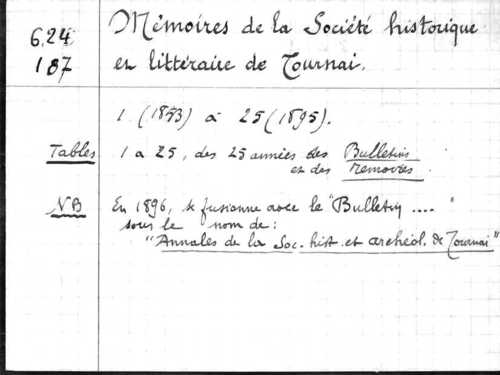 6.24
187
Mémoires de la Société historique
en littéraire de Tournai.
1 (1853) à 25 (1895).
Tables 1 a 25, des 25 années des Bulletins
et des Memoires.
NB En 1896, se fusionne avec le "Bulletin .... "
sous le nom de:
"Annales de la Soc. hist. et archéol. de Tournai"